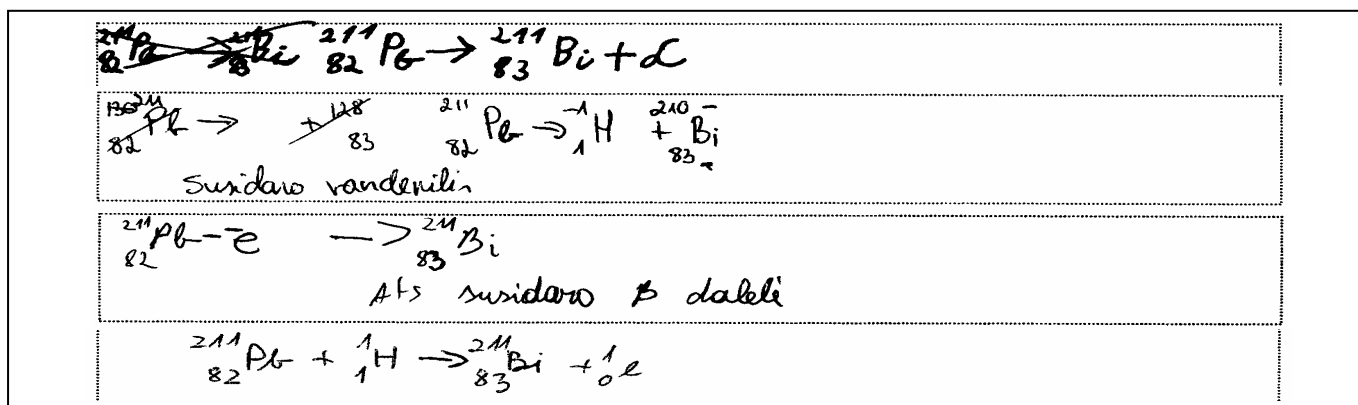 ²¹¹₈₂Pb → ²¹¹₈₃Bi ²¹¹₈₂Pb → ²¹¹₈₃Bi + α
²¹¹₈₂Pb → + ¹²⁸₈₃ ²¹¹₈₂Pb → ⁻¹₁H + ²¹⁰₈₃Bi
Susidaro vandenilis
²¹¹₈₂Pb - ⁻e —> ²¹¹₈₃Bi
Ats susidaro β dalelė
²¹¹₈₂Pb + ¹₁H → ²¹¹₈₃Bi + ¹₀e